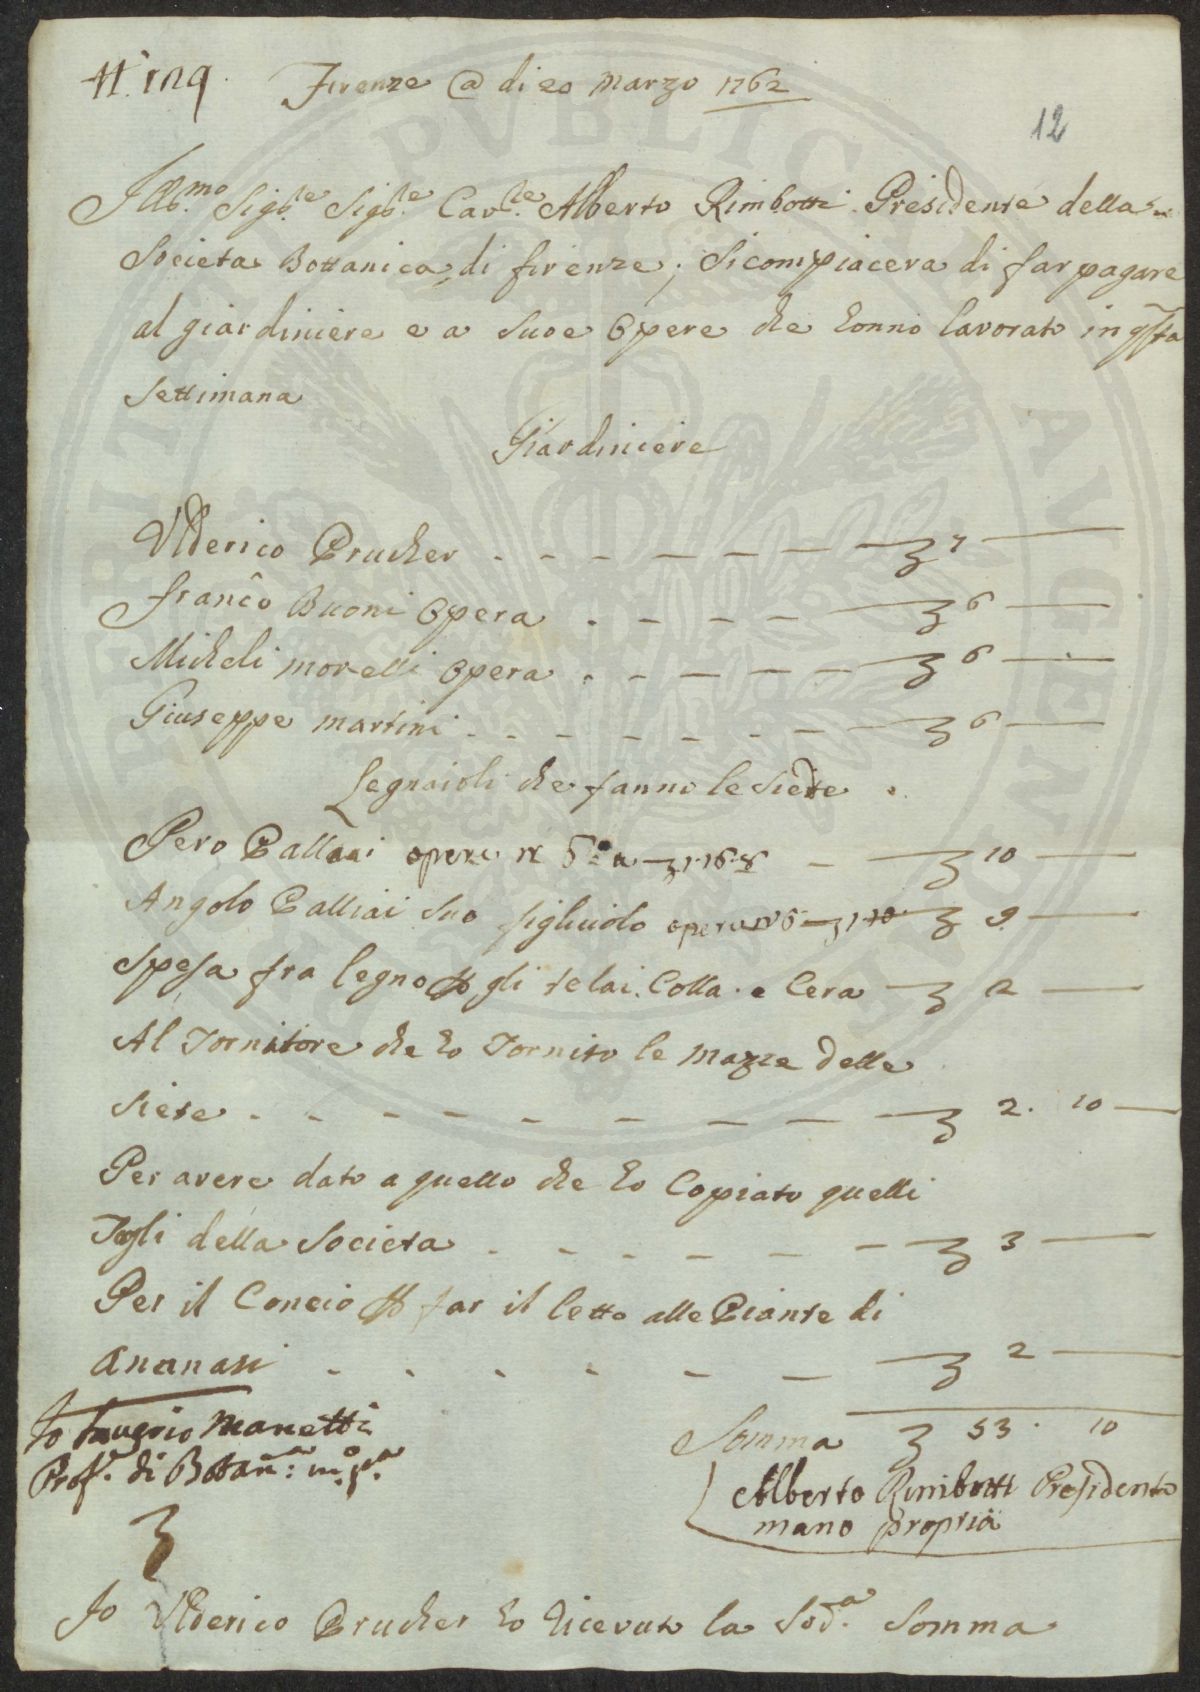 Firenze @ di 20 Marzo 1762
12
Ill.mo Sig.re Sig.re Cav.re Alberto Rimbotti Presidente della
Societa Bottanica di firenze; Si compiacera di far pagare
al giardiniere e a Suoe Opere che honno lavorato in qsta
Settimana
Giardiniere
Ulderico Prucher 7
franco Buoni Opera 6
Micheli morelli Opera 6
Giuseppe martini 6
Legnaioli che fanno le Siete
Pero Pallai opere n 6 a 1.16.8 10
Angolo Palliai Suo figliuolo opera n 6 1.10 9
Spesa fra legno p gli telai. Colla. e Cera 2
Al Tornitore che ho Tornito le mazze delle
Siete 2. 10
Per avere dato a quello che ho Copiato quelli
Fogli della Societa 3
Per il Concio p far il letto alle Piante di
Ananasi 2
Somma 53. 10
Io Saverio Manetti
Prof.e di Botan.a: m.o p.a
Alberto Rimbotti Presidente
mano propria
Io Ulderico Prucher ho Ricevuto la Sod.a Somma